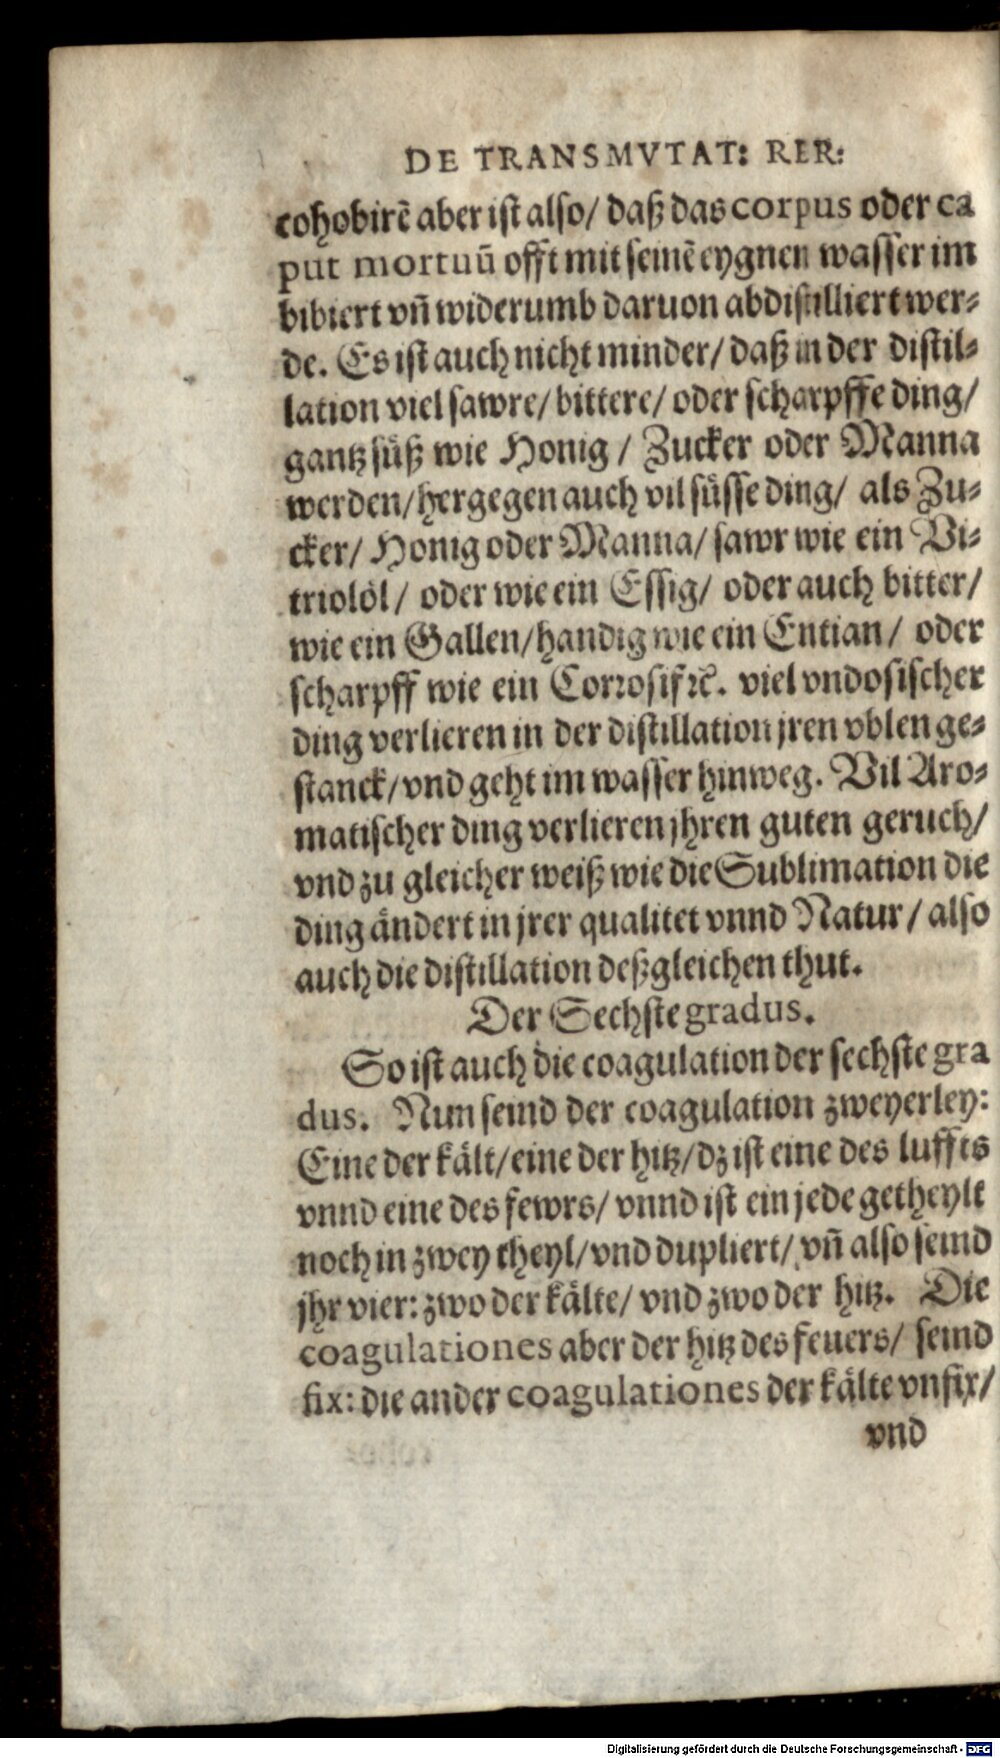 DE TRANSMVTAT: RER:
cohobirẽ aber ist also/ daß das corpus oder ca
put mortuũ offt mit seinẽ eygnen wasser im
bibiert vñ widerumb daruon abdistilliert wer⸗
de. Es ist auch nicht minder/ daß in der distil⸗
lation viel sawre/ bittere/ oder scharpffe ding/
gantz süß wie Honig / Zucker oder Manna
werden/hergegen auch vil süsse ding/ als Zu⸗
cker/ Honig oder Manna/ sawr wie ein Vi⸗
triolöl/ oder wie ein Essig/ oder auch bitter/
wie ein Gallen/handig wie ein Entian/ oder
scharpff wie ein Corrosif ꝛc̃. viel vndosischer
ding verlieren in der distillation jren vblen ge⸗
stanck/vnd geht im wasser hinweg. Vil Aro⸗
matischer ding verlieren jhren guten geruch/
vnd zu gleicher weiß wie die Sublimation die
ding ändert in jrer qualitet vnnd Natur/ also
auch die distillation deßgleichen thut.
Der Sechste gradus.
So ist auch die coagulation der sechste gra
dus. Nun seind der coagulation zweyerley:
Eine der kält/eine der hitz/dz ist eine des luffts
vnnd eine des fewrs/ vnnd ist ein jede getheylt
noch in zwey theyl/vnd dupliert/ vñ also seind
jhr vier: zwo der kälte/ vnd zwo der hitz. Die
coagulationes aber der hitz des feuers/ seind
fix: die ander coagulationes der kälte vnfix/
vnd
Digitalisierung gefördert durch die Deutsche Forschungsgemeinschaft - DFG